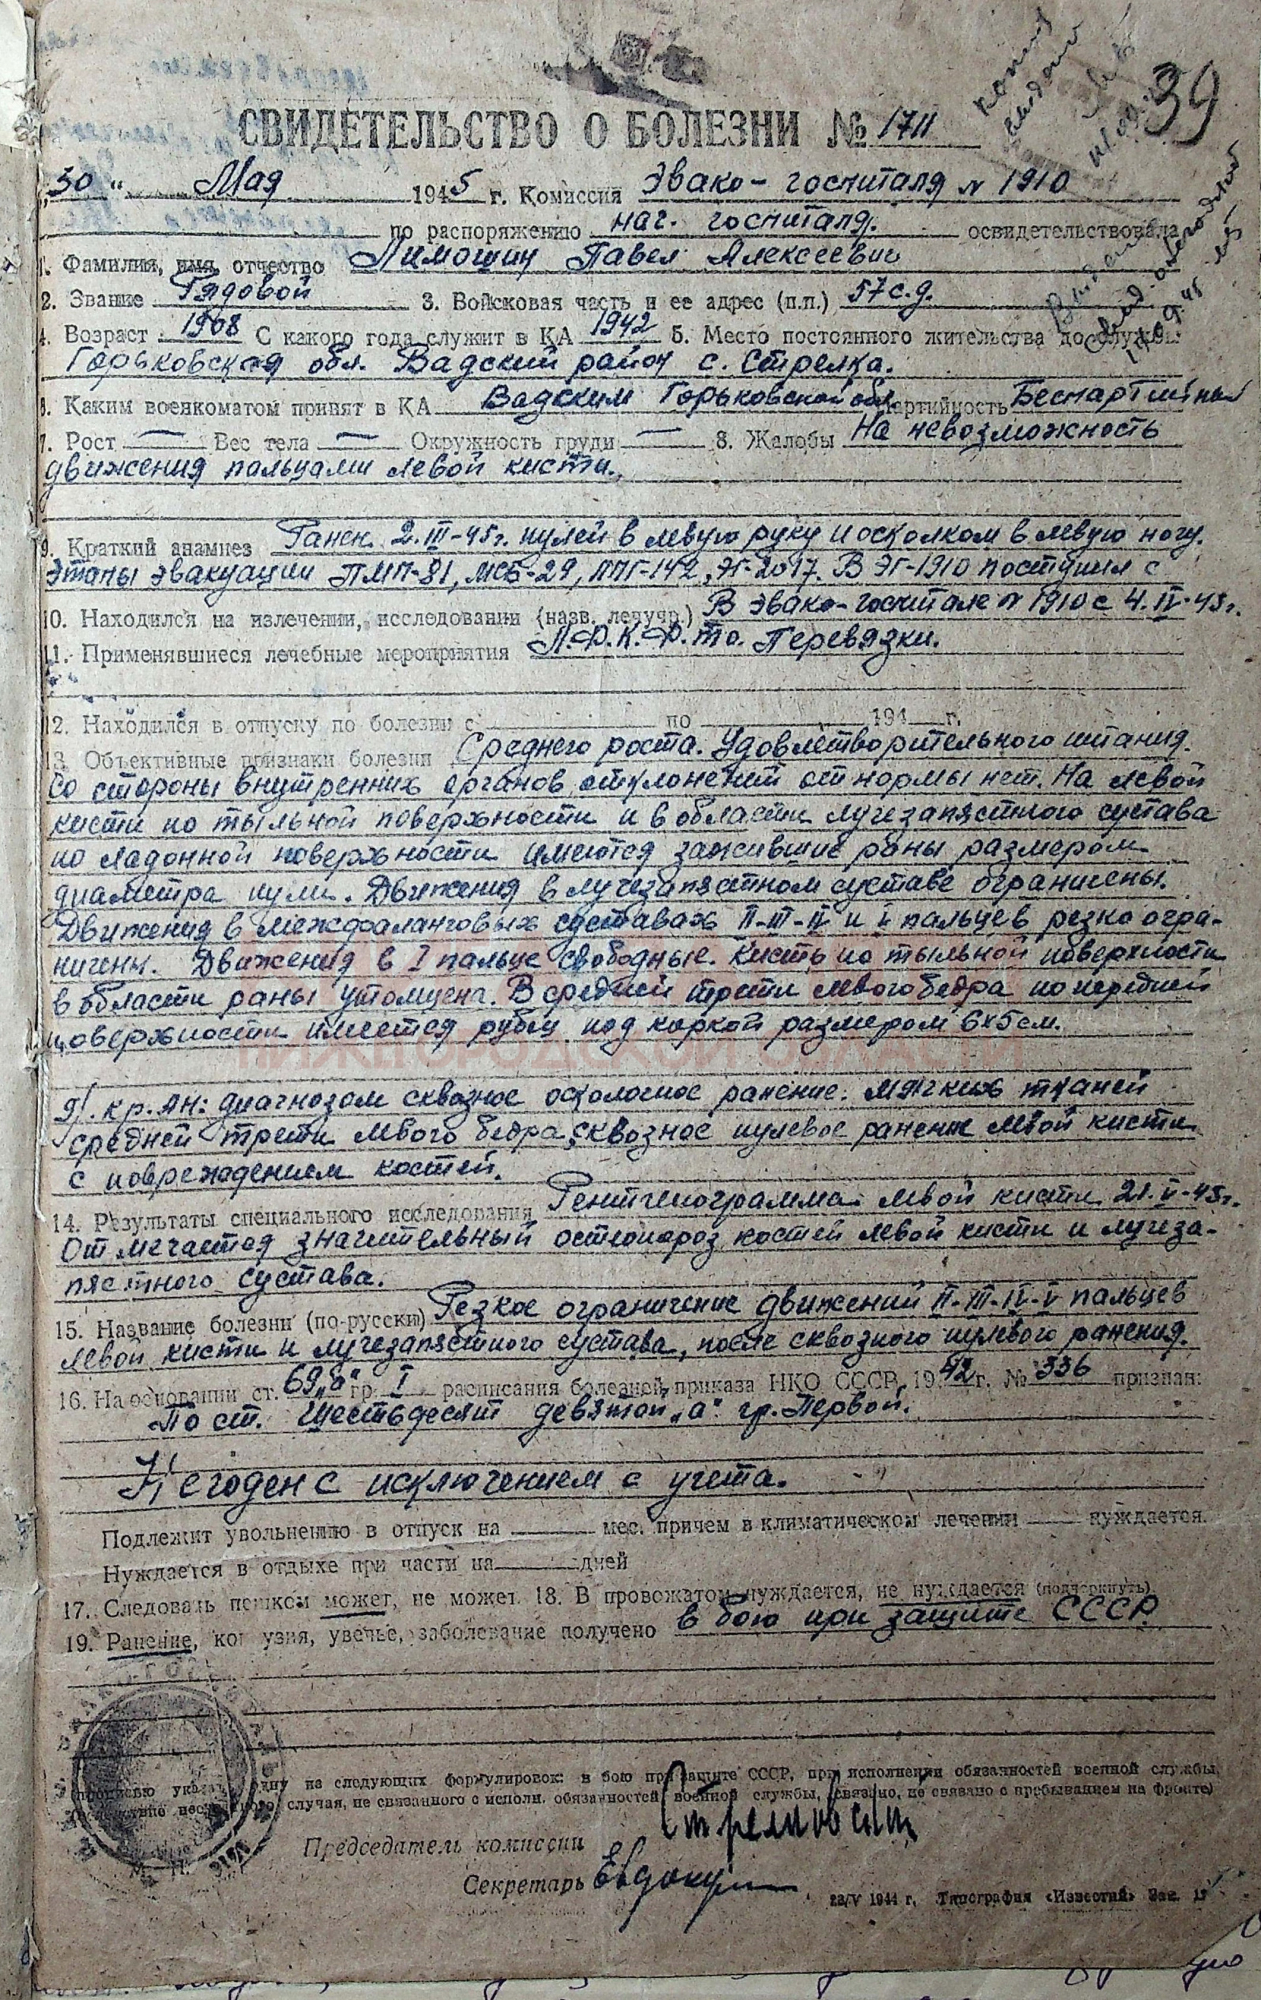 39
СВИДЕТЕЛЬСТВО О БОЛЕЗНИ № 1711
„30“ Мая 1945 г. Комиссия Эвако-госпиталя № 1910
по распоряжению нач. госпиталя. освидетельствовала
1. Фамилия, имя, отчество Лимошин Павел Алексеевич
2. Звание Рядовой 3. Войсковая часть и ее адрес (п.п.) 57 с.д.
4. Возраст 1908 С какого года служит в КА 1942 5. Место постоянного жительства до службы
Горьковская обл. Вадский район с. Стрелка.
6. Каким военкоматом принят в КА Вадским Горьковской обл. Партийность Беспартийный
7. Рост — Вес тела — Окружность груди — 8. Жалобы На невозможность
движения пальцами левой кисти.
9. Краткий анамнез Ранен 2.III-45г. пулей в левую руку и осколком в левую ногу.
Этапы эвакуации ПМП-81, МСБ-29, ППГ-142, ЭГ-2017. В ЭГ-1910 поступил с
10. Находился на излечении, исследовании (назв. лечучр.) В Эвако-госпитале № 1910 с 4.IV-45г.
11. Применявшиеся лечебные мероприятия Л.Ф.К. Ф.то. Перевязки.
12. Находился в отпуску по болезни с по 194 г.
13. Объективные признаки болезни Среднего роста. Удовлетворительного питания.
Со стороны внутренних органов отклонений от нормы нет. На левой
кисти по тыльной поверхности и в области лучезапястного сустава
по ладонной поверхности имеются зажившие раны размером
диаметра пули. Движения в лучезапястном суставе ограничены.
Движения в межфаланговых суставах II-III-IV и V пальцев резко огра-
ничены. Движения в I пальце свободные. Кисть по тыльной поверхности
в области раны утолщена. В средней трети левого бедра по передней
поверхности имеется рубец под коркой размером 6х5 см.
Д/. кр. АН: диагнозом сквозное осколочное ранение мягких тканей
средней трети левого бедра, сквозное пулевое ранение левой кисти
с повреждением костей.
14. Результаты специального исследования Рентгенограмма левой кисти 21.V-45г.
Отмечается значительный остеопороз костей левой кисти и лучеза-
пястного сустава.
15. Название болезни (по-русски) Резкое ограничение движений II-III-IV-V пальцев
левой кисти и лучезапястного сустава, после сквозного пулевого ранения.
16. На основании ст. 69 „а“ гр. I расписания болезней приказа НКО СССР 1942 г. № 336 признан:
По ст. Шестьдесят девятой „а“ гр. Первой.
Негоден с исключением с учета.
Подлежит увольнению в отпуск на мес. причем в климатическом лечении нуждается.
Нуждается в отдыхе при части на дней
17. Следовать пешком может, не может. 18. В провожатом нуждается, не нуждается (подчеркнуть).
19. Ранение, контузия, увечье, заболевание получено в бою при защите СССР
одну из следующих формулировок: в бою при защите СССР, при исполнении обязанностей военной службы,
случая, не связанного с исполн. обязанностей военной службы, (связано, не связано с пребыванием на фронте)
Председатель комиссии
Секретарь
М. П.
22/V 1944 г. Типография «Известий» Зак.
НИЖЕГОРОДСКОЙ ОБЛАСТИ